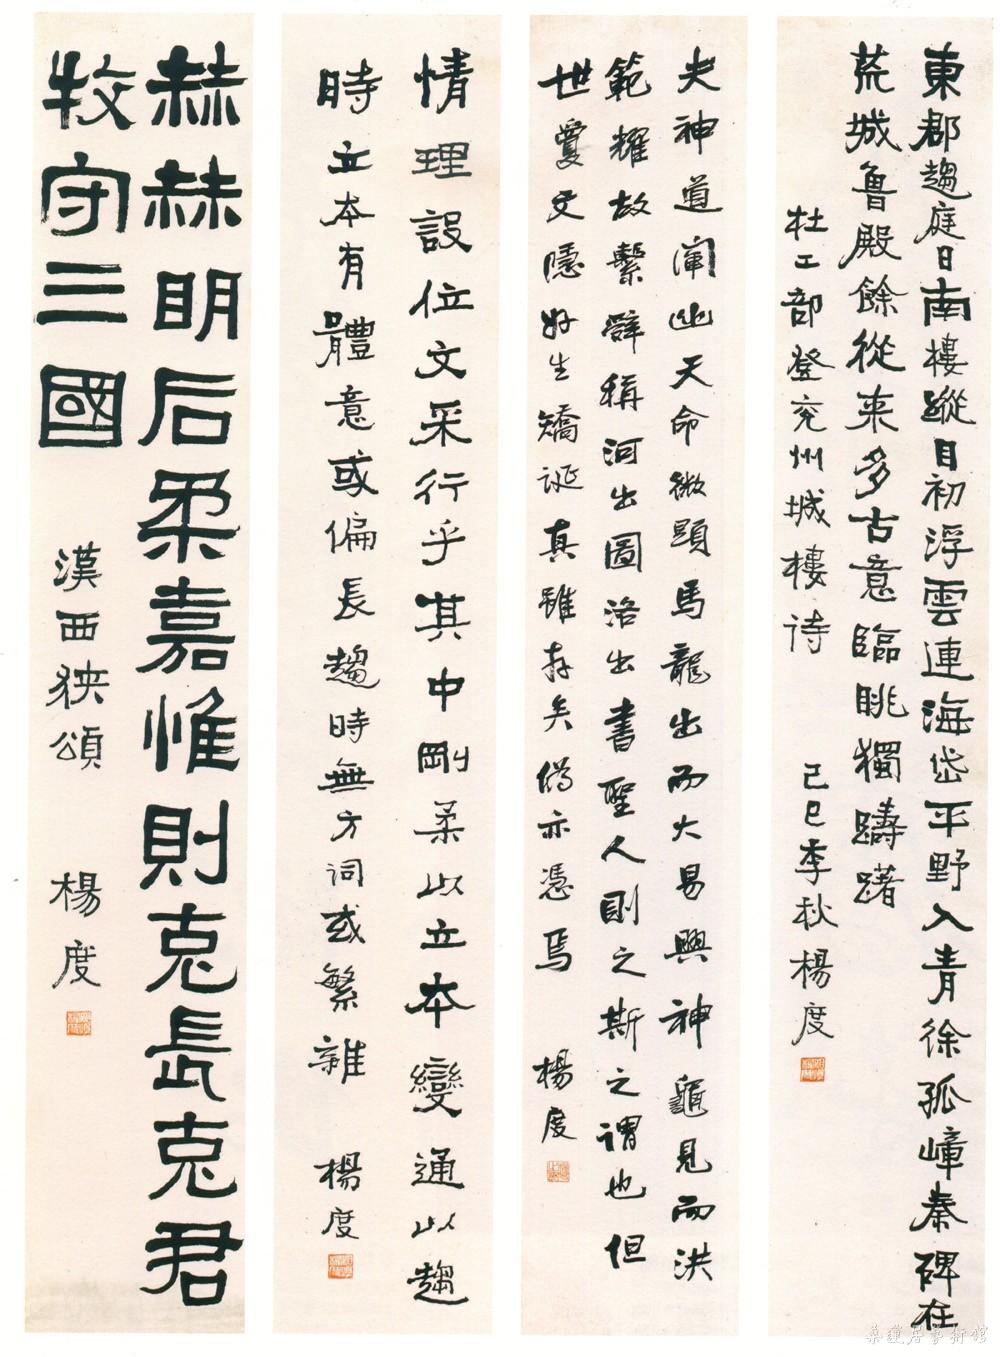 東郡趨庭日南樓蹤目初浮雲連海岱平野入青徐孤嶂秦碑在
荒城魯殿餘從来多古意臨眺獨躊躇
杜工部登兖州城樓诗 己巳季秋楊度
夫神道闡幽天命微顯馬龍出而大易興神龜見而洪
範耀故繫辭稱河出圖洛出書聖人則之斯之謂也但
世敻文隱好生矯诞真雖存矣偽亦憑焉 楊度
情理設位文采行乎其中剛柔以立本變通以趨
時立本有體意或偏長趨時無方词或繁雜 楊度
赫赫明后柔嘉惟則克長克君
牧守三國 漢西狹頌 楊度
桑蓮居藝術館